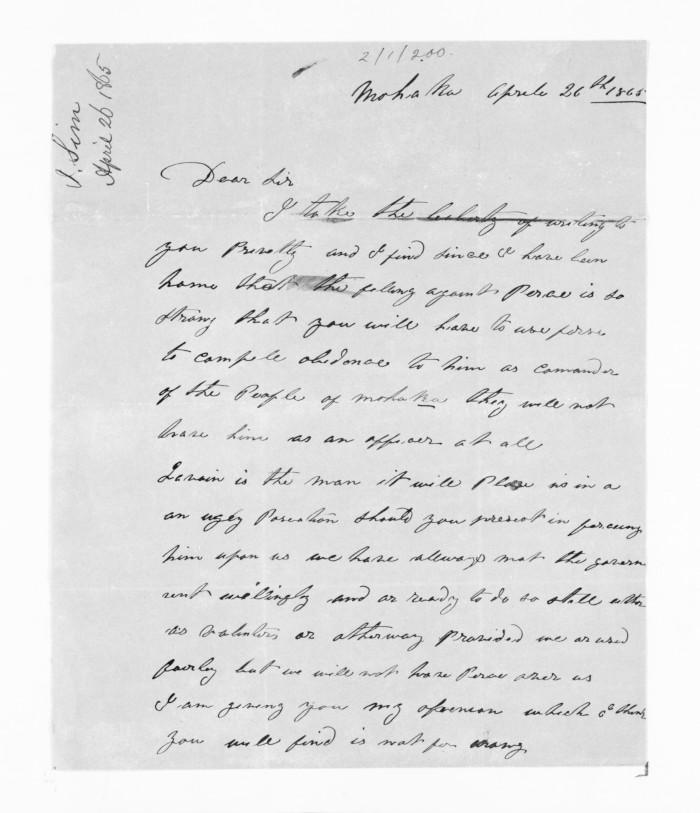 2/1/200.
J. Sim
April 26 1865
Mohaka Aprile 26th 1865
Dear Sir
I take the leberty of writing to
you Privetly and I find since I have been
home that the feling against Perce is so
strong that you will have to use forse
to compele obidence to him as comander
of the People of Mohaka they will not
have him as an officer at all
is the man it will Plase us in a
an ugley Poseation should you presest in forceing
him upon us we have allways mat the govern
ment willingly and ar ready to do so still ether
as valintors or atherway Provided we ar used
fairley but we will not have Perce over us
I am giveng you my openion which I think
you will find is not far wrong